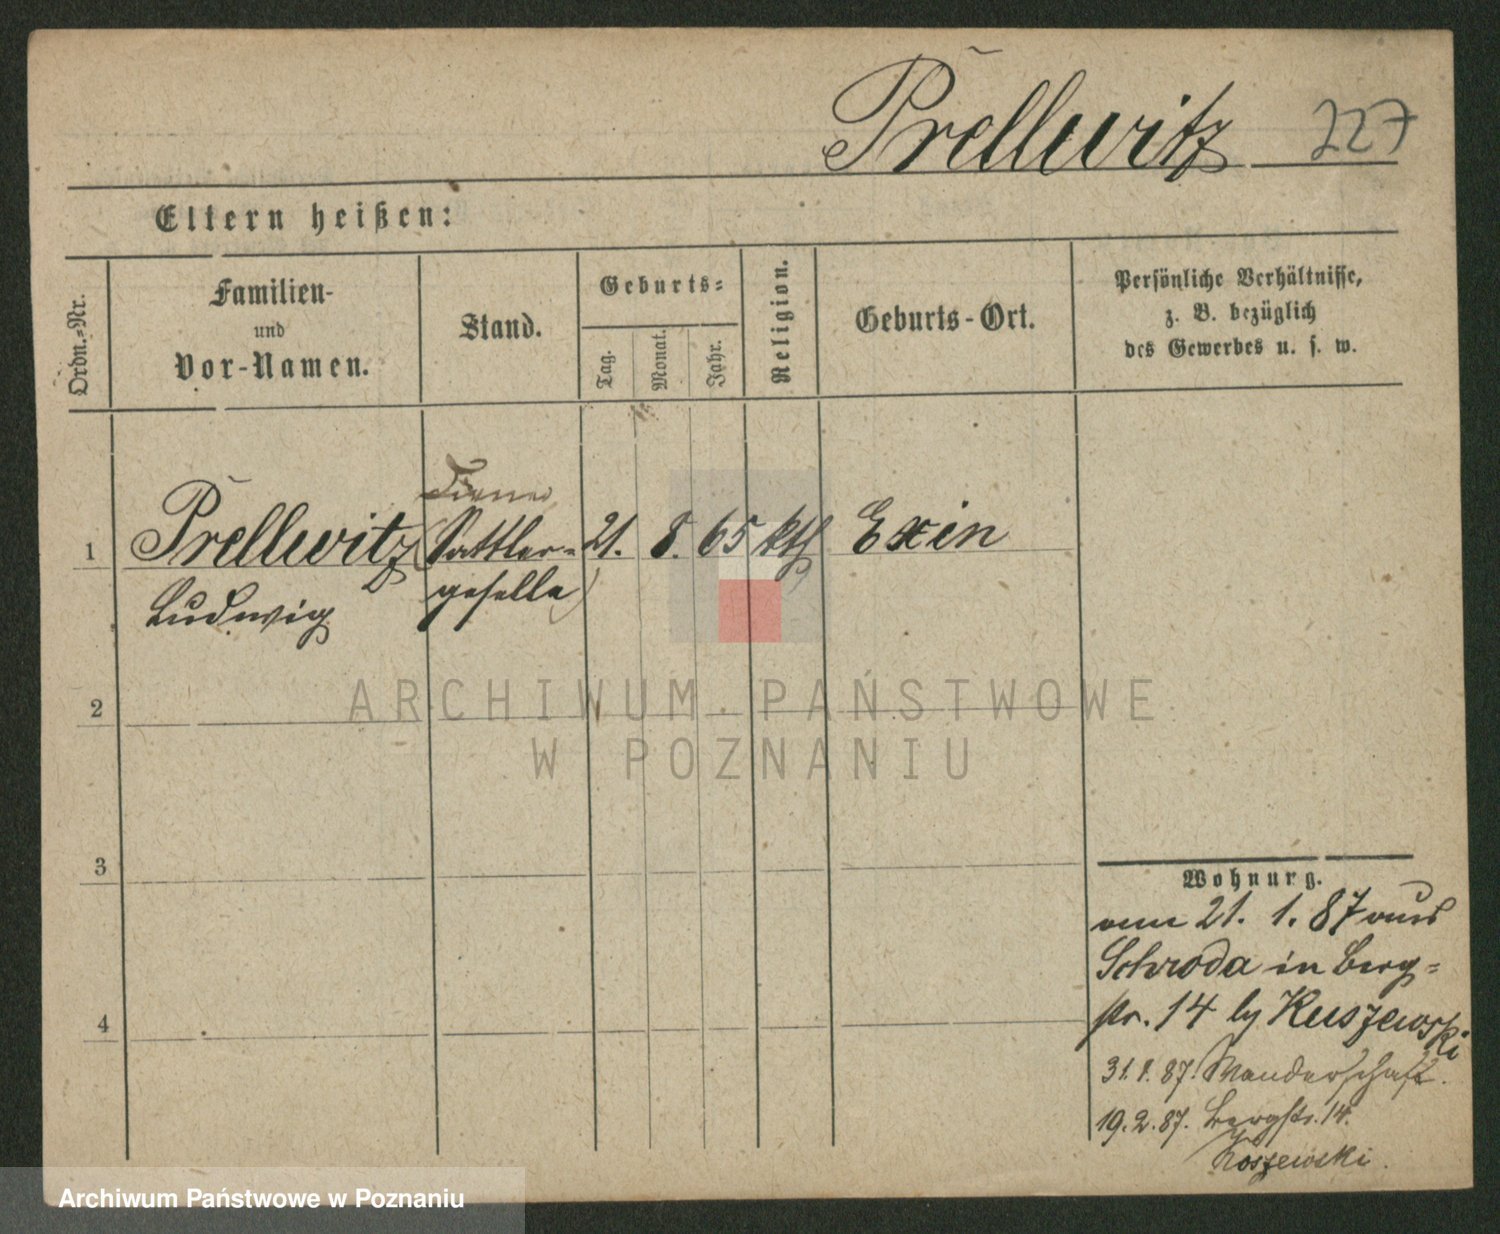 Prellwitz 227
Eltern heißen:
Ordn.-Nr.
Familien-
und
Vor-Namen.
Stand.
Geburts-
Tag.
Monat.
Jahr.
Religion.
Geburts-Ort.
Persönliche Verhältnisse,
z. B. bezüglich
des Gewerbes u. s. w.
Diener
1 Prellwitz (Sattler- 21. 8. 65 kth Exin
Ludwig geselle)
2
3
4
Wohnung.
vom 21. 1. 87 aus
Schroda in Berg-
str. 14 by Kuszewski
31. 1. 87. Wanderschaft.
19. 2. 87. Bergstr. 14.
Koszewski.
ARCHIWUM PAŃSTWOWE
W POZNANIU
Archiwum Państwowe w Poznaniu